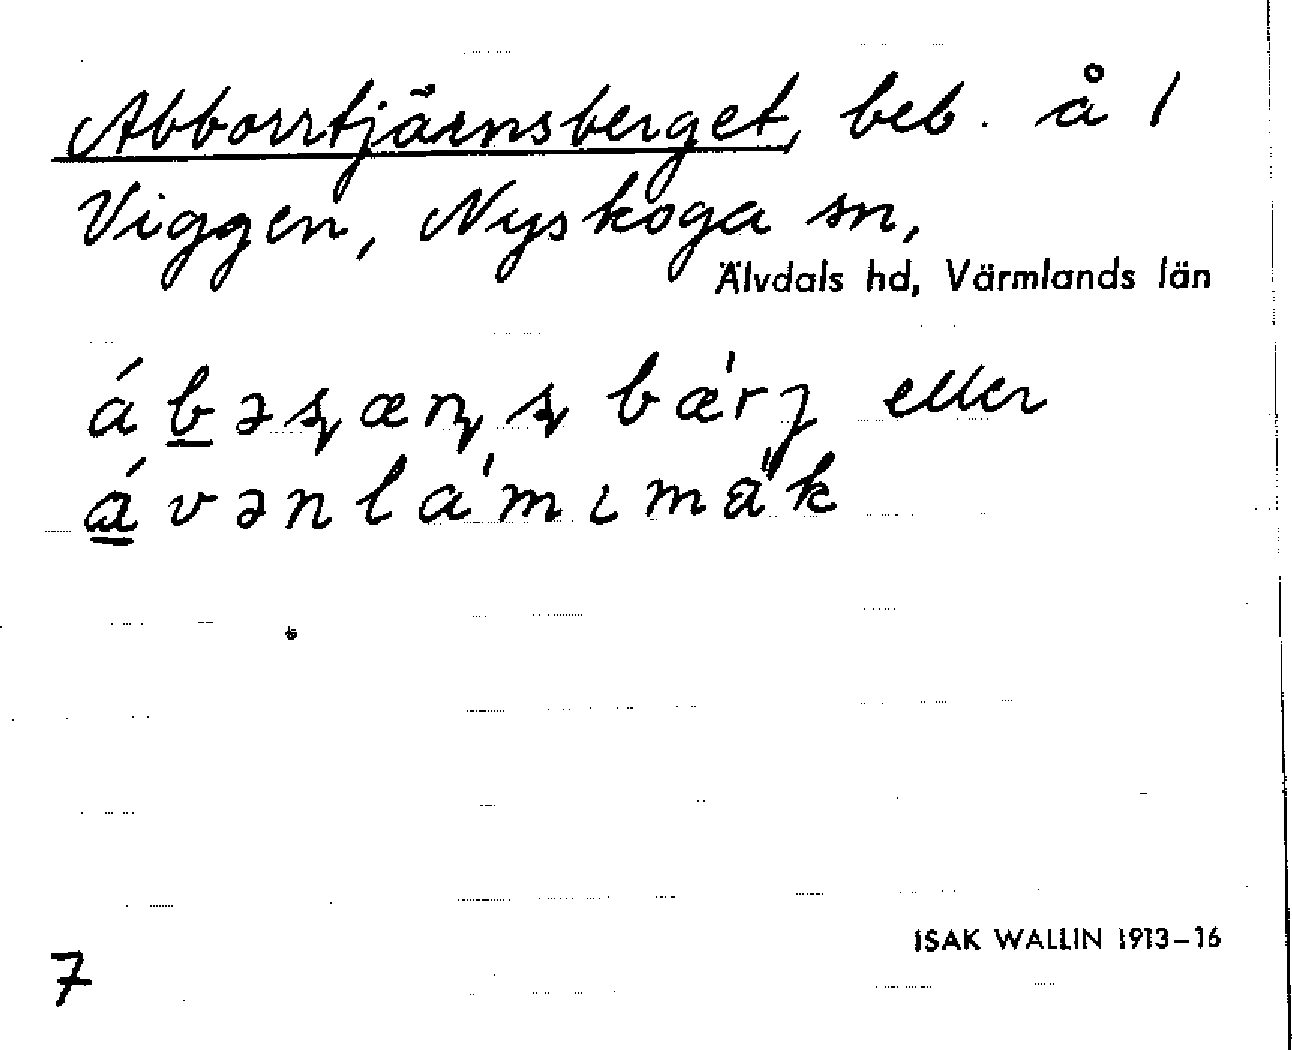 Abborrtjärnsberget, beb. å 1
Viggen, Nyskoga sn,
Älvdals hd, Värmlands län
áb̲əʂæɳʂbǽrȷ eller
á̲vənlámɩmäk
ISAK WALLIN 1913-16
7